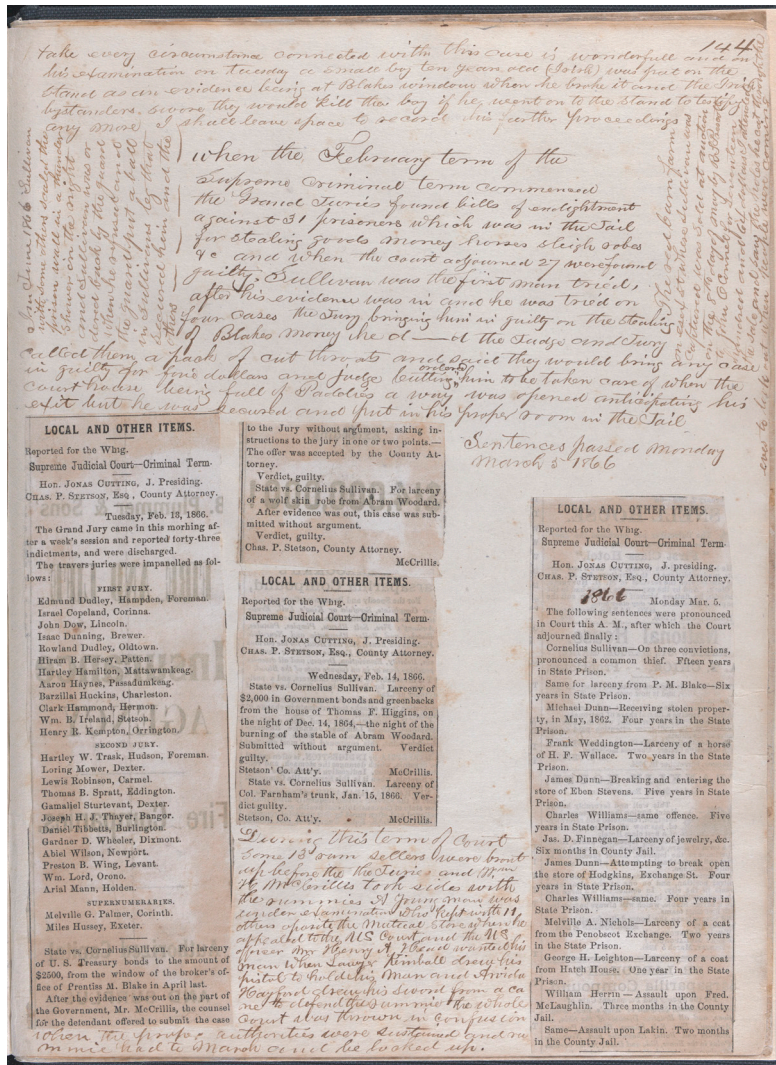 144
take every circumstance connected with this case is wonderfull and on
his examination on tuesday a small boy ten years old was put on the
stand as an evidence being at Blakes window when he broke it and the
bystanders swore they would kill the boy if he went on to the stand to testify
any more I shall leave space to record his further proceedings
when the February term of the
Supreme Criminal term commenced
the Grand Juries found bills of
against 31 prisoners which was in the Jail
for stealing goods money horses sleigh robes
&c and when the court adjourned 27 were found
guilty. Sullivan was the first man tried,
after his evidence was in and he was tried on
four cases the Jury bringing him in guilty on the stealing
of Blakes money he d——d the Judge and Jury
called them a pack of cut throats and said they would bring any case
in guilty for five dollars and Judge Cutting ordered him to be taken care of when the
Court house being full of Paddies a way was opened anticipating his
exit but he was secured and put in his proper room in the Jail
In June 1866 Sullivan
with some others scaled the
prison walls in a thunder
shower in the night
and Sullivan was or
dered back by the guard
when he refused and
the guard put a ball
in Sullivans leg that
secured him and the
others
LOCAL AND OTHER ITEMS.
Reported for the Whig.
Supreme Judicial Court—Criminal Term.
Hon. JONAS CUTTING, J. Presiding.
CHAS. P. STETSON, ESQ, County Attorney.
Tuesday, Feb. 13, 1866.
The Grand Jury came in this morning af-
ter a week's session and reported forty-three
indictments, and were discharged.
The travers juries were impannelled as fol-
lows:
FIRST JURY.
Edmund Dudley, Hampden, Foreman.
Israel Copeland, Corinna.
John Dow, Lincoln.
Isaac Dunning, Brewer.
Rowland Dudley, Oldtown.
Hiram B. Hersey, Patten.
Hartley Hamilton, Mattawamkeag.
Aaron Haynes, Passadumkeag.
Barzillai Huckins, Charleston.
Clark Hammond, Hermon.
Wm. B. Ireland, Stetson.
Henry R. Kempton, Orrington.
SECOND JURY.
Hartley W. Trask, Hudson, Foreman.
Loring Mower, Dexter.
Lewis Robinson, Carmel.
Thomas B. Spratt, Eddington.
Gamaliel Sturtevant, Dexter.
Joseph H. J. Thayer, Bangor.
Daniel Tibbetts, Burlington.
Gardner D. Wheeler, Dixmont.
Abiel Wilson, Newport.
Preston B. Wing, Levant.
Wm. Lord, Orono.
Arial Mann, Holden.
SUPERNUMERARIES.
Melville G. Palmer, Corinth.
Miles Hussey, Exeter.
State vs. Cornelius Sullivan. For larceny
of U. S. Treasury bonds to the amount of
$2500, from the window of the broker's of-
fice of Prentiss M. Blake in April last.
After the evidence was out on the part of
the Government, Mr. McCrillis, the counsel
for the defendant offered to submit the case
to the Jury without argument, asking in-
structions to the jury in one or two points.—
The offer was accepted by the County At-
torney.
Verdict, guilty.
State vs. Cornelius Sullivan. For larceny
of a wolf skin robe from Abram Woodard.
After evidence was out, this case was sub-
mitted without argument.
Verdict, guilty.
Chas. P. Stetson, County Attorney.
McCrillis.
LOCAL AND OTHER ITEMS.
Reported for the Whig.
Supreme Judicial Court—Criminal Term.
Hon. JONAS CUTTING, J. Presiding.
CHAS. P. STETSON, ESQ., County Attorney.
Wednesday, Feb. 14, 1866.
State vs. Cornelius Sullivan. Larceny of
$2,000 in Government bonds and greenbacks
from the house of Thomas F. Higgins, on
the night of Dec. 14, 1864,—the night of the
burning of the stable of Abram Woodard.
Submitted without argument. Verdict
guilty.
Stetson' Co. Att'y. McCrillis.
State vs. Cornelius Sullivan. Larceny of
Col. Farnham's trunk, Jan. 15, 1866. Ver-
dict guilty.
Stetson, Co. Att'y. McCrillis.
During this term of Court
some 13 rum sellers were brout
up before the Juries and Wm
H McCrillis took sides with
the rummies A Young man was
under examination who kept with 11
others oposite the Mutual Store when he
appealed to the US Court and the US
officer Mr Henry wanted his
man when Lawyer Kimball drew his
pistol to hold his man and
Harford drew his sword from a ca
ne to defend the rummie the whole
Court was thrown in confusion
when the proper authorities were sustained and ru
mmie had to March and be locked up.
Sentences passed Monday
March 5 1866
LOCAL AND OTHER ITEMS.
Reported for the Whig.
Supreme Judicial Court—Criminal Term.
Hon. JONAS CUTTING, J. presiding.
CHAS. P. STETSON, ESQ., County Attorney.
1866 Monday Mar. 5.
The following sentences were pronounced
in Court this A. M., after which the Court
adjourned finally:
Cornelius Sullivan—On three convictions,
pronounced a common thief. Ffteen years
in State Prison.
Same for larceny from P. M. Blake—Six
years in State Prison.
Michael Dunn—Receiving stolen proper-
ty, in May, 1862. Four years in the State
Prison.
Frank Weddington—Larceny of a horse
of H. F. Wallace. Two years in the State
Prison.
James Dunn—Breaking and entering the
store of Eben Stevens. Five years in State
Prison.
Charles Williams—same offence. Five
years in State Prison.
Jas. D. Finnegan—Larceny of jewelry, &c.
Six months in County Jail.
James Dunn—Attempting to break open
the store of Hodgkins, Exchange St. Four
years in State Prison.
Charles Williams—same. Four years in
State Prison.
Melville A. Nichols—Larceny of a coat
from the Penobscot Exchange. Two years
in the State Prison.
George H. Leighton—Larceny of a coat
from Hatch House. One year in the State
Prison.
William Herrin—Assault upon Fred.
McLaughlin. Three months in the County
Jail.
Same—Assault upon Lakin. Two months
in the County Jail.